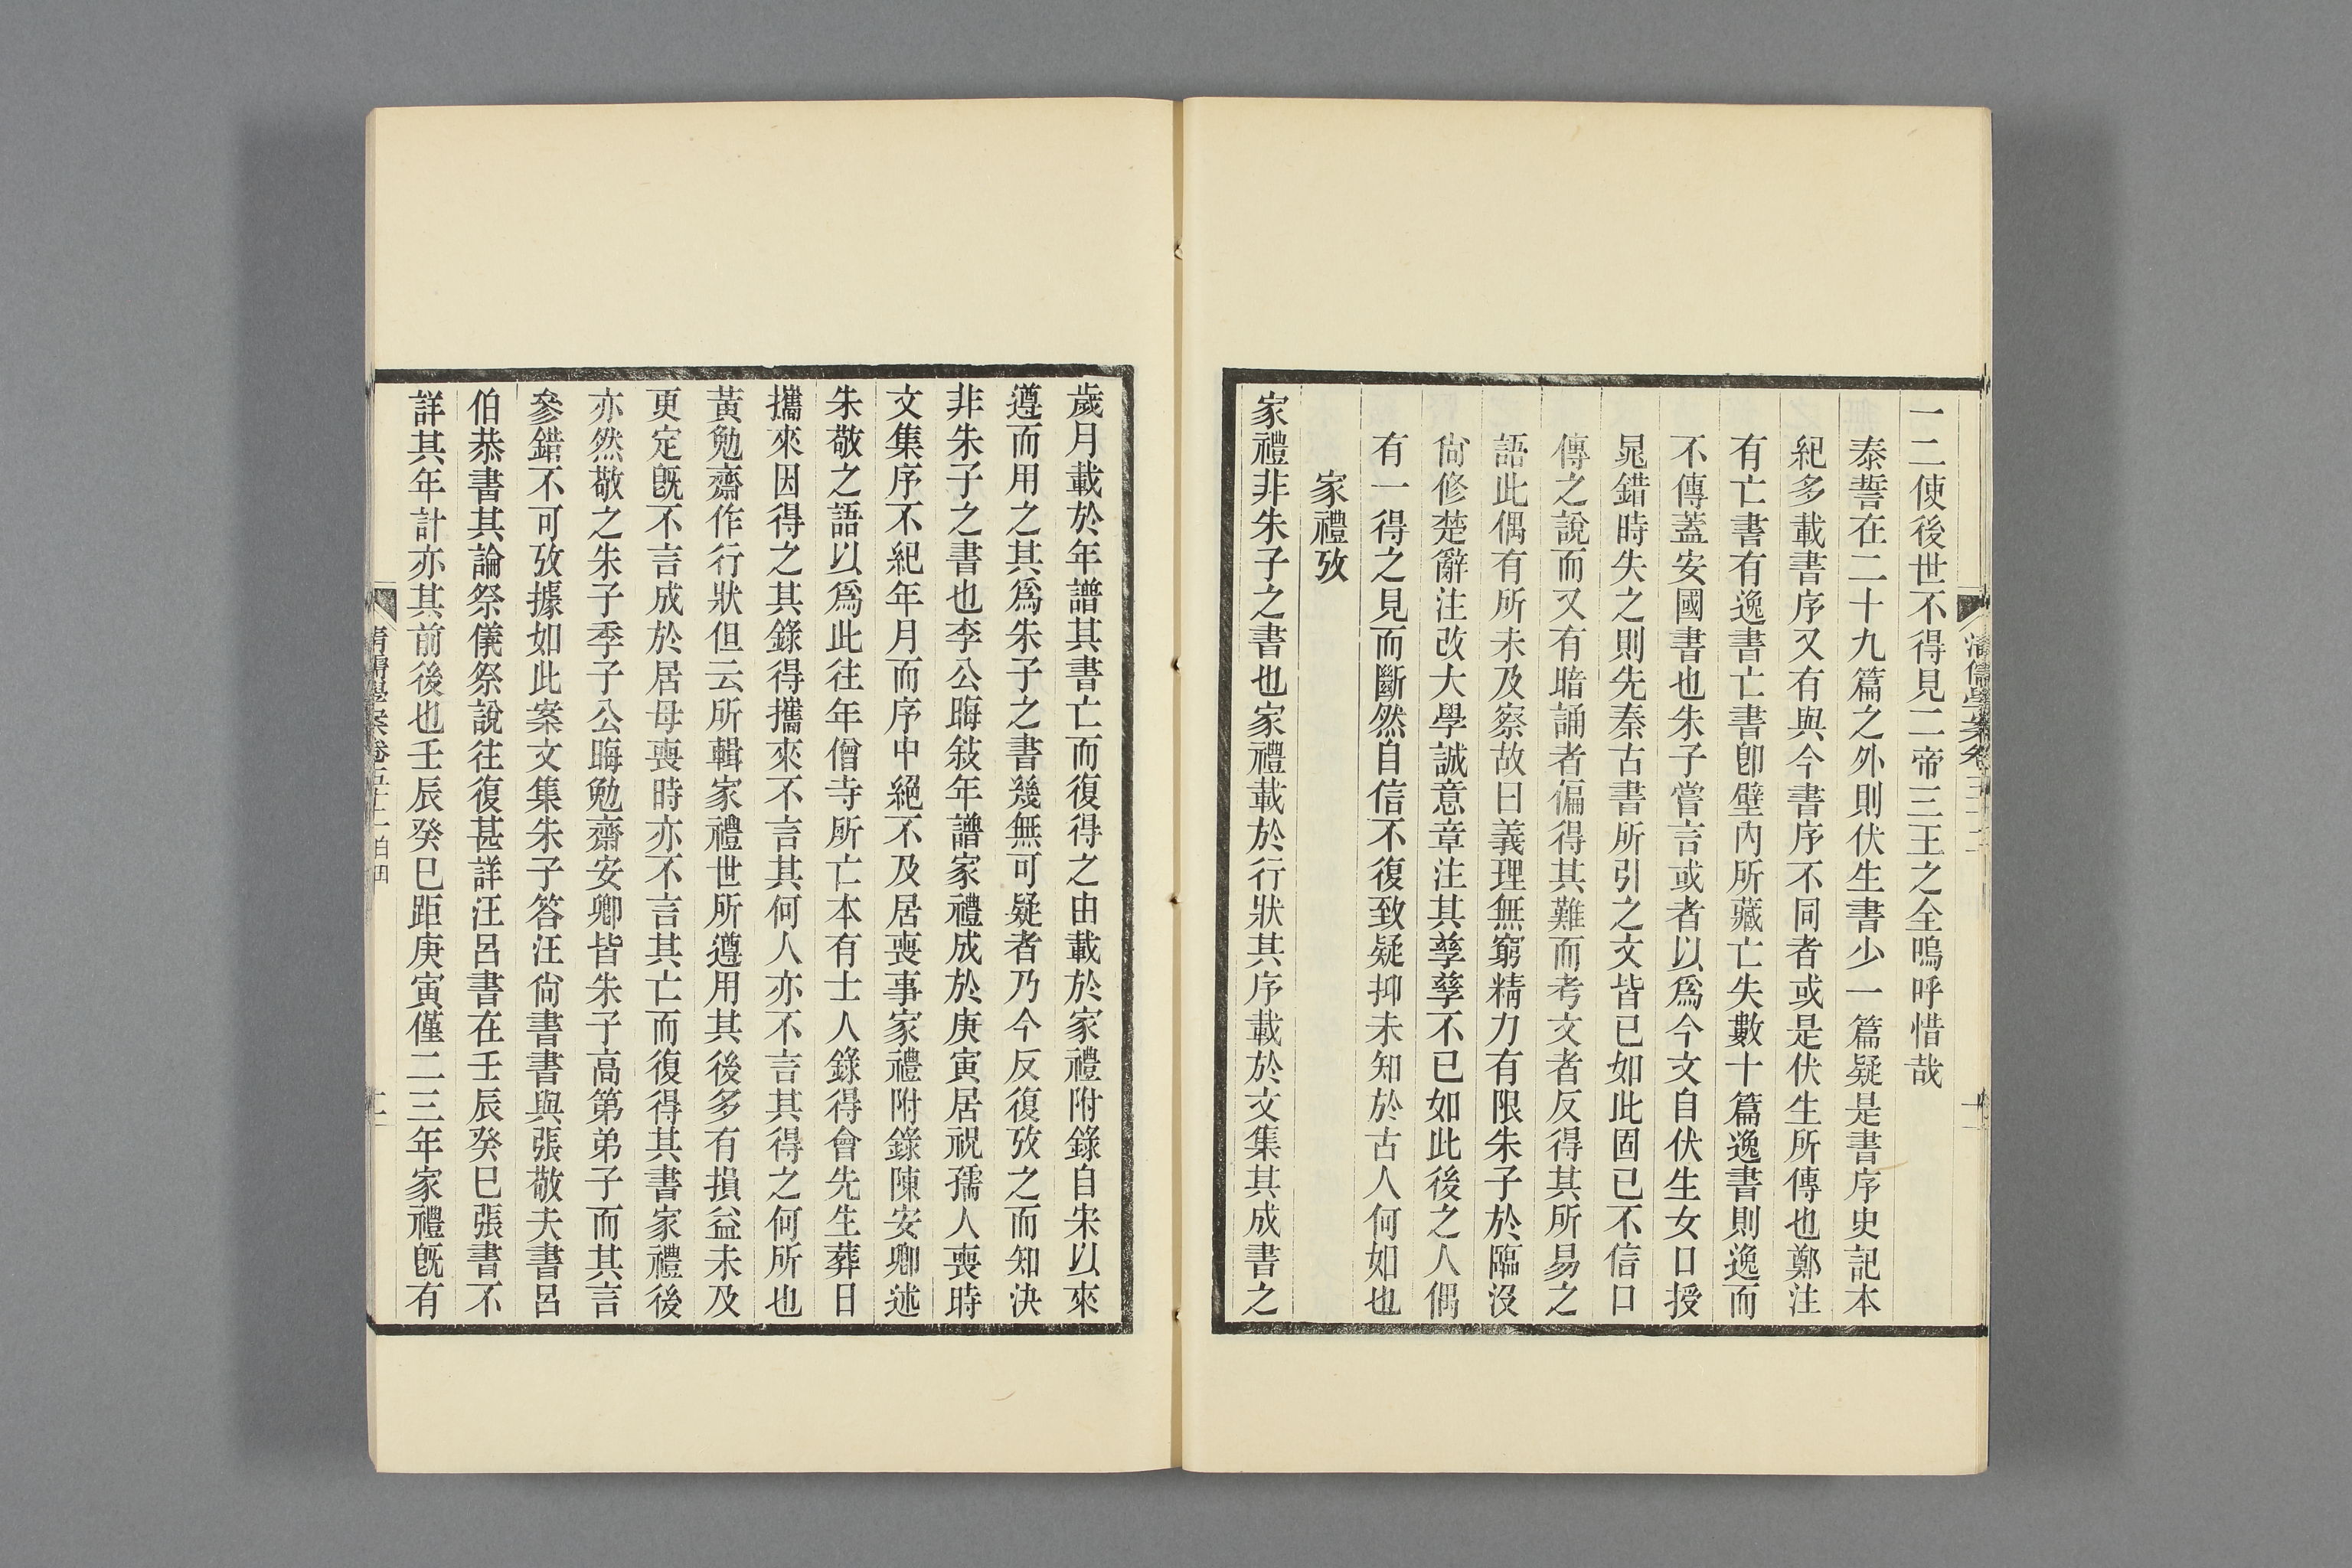 一二使後世不得見二帝三王之全嗚呼惜哉
泰誓在二十九篇之外則伏生書少一篇疑是書序史記本
紀多載書序又有與今書序不同者或是伏生所傳也鄭注
有亡書有逸書亡書卽壁內所藏亡失數十篇逸書則逸而
不傳蓋安國書也朱子嘗言或者以爲今文自伏生女口授
晁錯時失之則先秦古書所引之文皆已如此固已不信口
傳之說而又有暗誦者偏得其難而考文者反得其所易之
語此偶有所未及察故曰義理無窮精力有限朱子於臨沒
尙修楚辭注改大學誠意章注其孳孳不已如此後之人偶
有一得之見而斷然自信不復致疑抑未知於古人何如也
家禮攷
家禮非朱子之書也家禮載於行狀其序載於文集其成書之
歲月載於年譜其書亡而復得之由載於家禮附錄自宋以來
遵而用之其爲朱子之書幾無可疑者乃今反復攷之而知決
非朱子之書也李公晦敍年譜家禮成於庚寅居祝孺人喪時
文集序不紀年月而序中絕不及居喪事家禮附錄陳安卿述
朱敬之語以爲此往年僧寺所亡本有士人錄得會先生葬日
攜來因得之其錄得攜來不言其何人亦不言其得之何所也
黃勉齋作行狀但云所輯家禮世所遵用其後多有損益未及
更定旣不言成於居母喪時亦不言其亡而復得其書家禮後
亦然敬之朱子季子公晦勉齋安卿皆朱子高第弟子而其言
參錯不可攷據如此案文集朱子答汪尙書書與張敬夫書呂
伯恭書其論祭儀祭說往復甚詳汪呂書在壬辰癸巳張書不
詳其年計亦其前後也壬辰癸巳距庚寅僅二三年家禮旣有